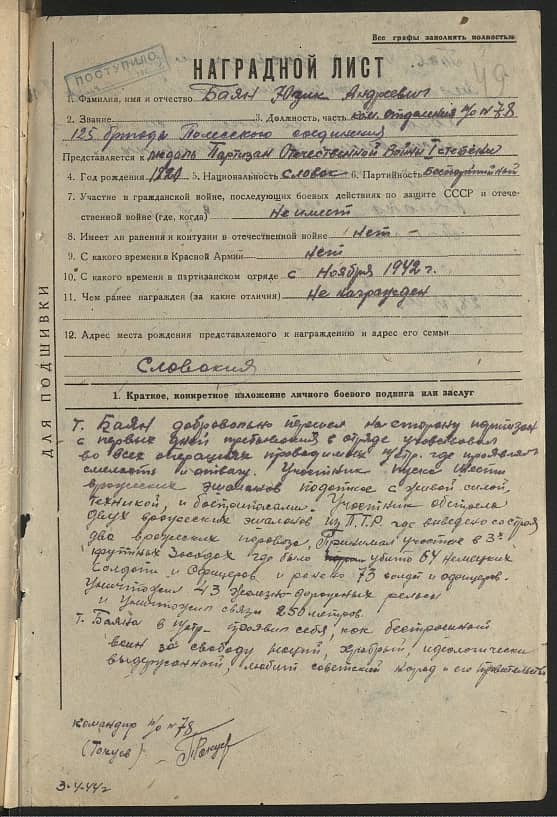 Все графы заполнять полностью
ПОСТУПИЛО
49
НАГРАДНОЙ ЛИСТ
1. Фамилия, имя и отчество Баян Юзик Андреевич
2. Звание 3. Должность, часть ком. отделения п/о №78
125 бригады Полесского соединения
Представляется к медаль Партизан Отечественной Войны I степени
4. Год рождения 5. Национальность словак 6. Партийность Беспартийный
7. Участие в гражданской войне, последующих боевых действиях по защите СССР и отече-
ственной войне (где, когда) не имеет
8. Имеет ли ранения и контузии в отечественной войне нет
9. С какого времени в Красной Армии нет
10. С какого времени в партизанском отряде с Ноября 1942 г.
11. Чем ранее награжден (за какие отличия) Не награжден
12. Адрес места рождения представляемого к награждению и адрес его семьи
Словакия
ДЛЯ ПОДШИВКИ
1. Краткое, конкретное изложение личного боевого подвига или заслуг
т. Баян добровольно перешел на сторону партизан
с первых дней пребывания в отряде участвовал
во всех операциях проводимых где проявлял
смелость и отвагу. Участник пуска шести
вражеских эшалонов под откос с живой силой,
техникой, и боеприпасами. Участник обстрела
двух вражеских эшалонов из П.Т.Р. где выведено со строя
два вражеских паровоза, Принимал участие в 3х
крупных Засадах где было убито 64 немецких
Солдат и Офицеров и ранено 73 солдат и офицеров.
Уничтожил 43 железно-дорожных рельсы
и Уничтожил связи 250 метров.
Т. Баян в проявил себя, как бесстрашный
воин за свободу наций, храбрый, идеологически
выдержанный, любит советский народ и его правительство
командир п/о №78
(Токуев)
3-4-44г